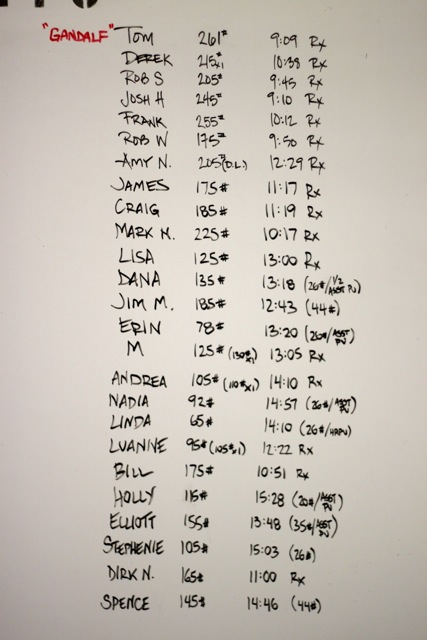 "GANDALF" TOM 261# 9:09 Rx
DEREK 215#x1 10:38 Rx
ROB S 205# 9:45 Rx
JOSH H 245# 9:10 Rx
FRANK 255# 10:12 Rx
ROB W 175# 9:50 Rx
AMY N. 205#(D.L.) 12:29 Rx
JAMES 175# 11:17 Rx
CRAIG 185# 11:19 Rx
MARK H. 225# 10:17 Rx
LISA 125# 13:00 Rx
DANA 135# 13:18 (26#/1/2 ASST PU)
JIM M. 185# 12:43 (44#)
ERIN 78# 13:20 (26#/ASST PU)
M 125# (130#x1) 13:05 Rx
ANDREA 105# (110#x1) 14:10 Rx
NADIA 92# 14:57 (26#/ASST PU)
LINDA 65# 14:10 (26#/HRPU)
LUANNE 95# (105#x1) 12:22 Rx
BILL 175# 10:51 Rx
HOLLY 115# 15:28 (20#/ASST PU)
ELLIOTT 155# 13:48 (35#/ASST PU)
STEPHENIE 105# 15:03 (26#)
DIRK N. 165# 11:00 Rx
SPENCE 145# 14:46 (44#)